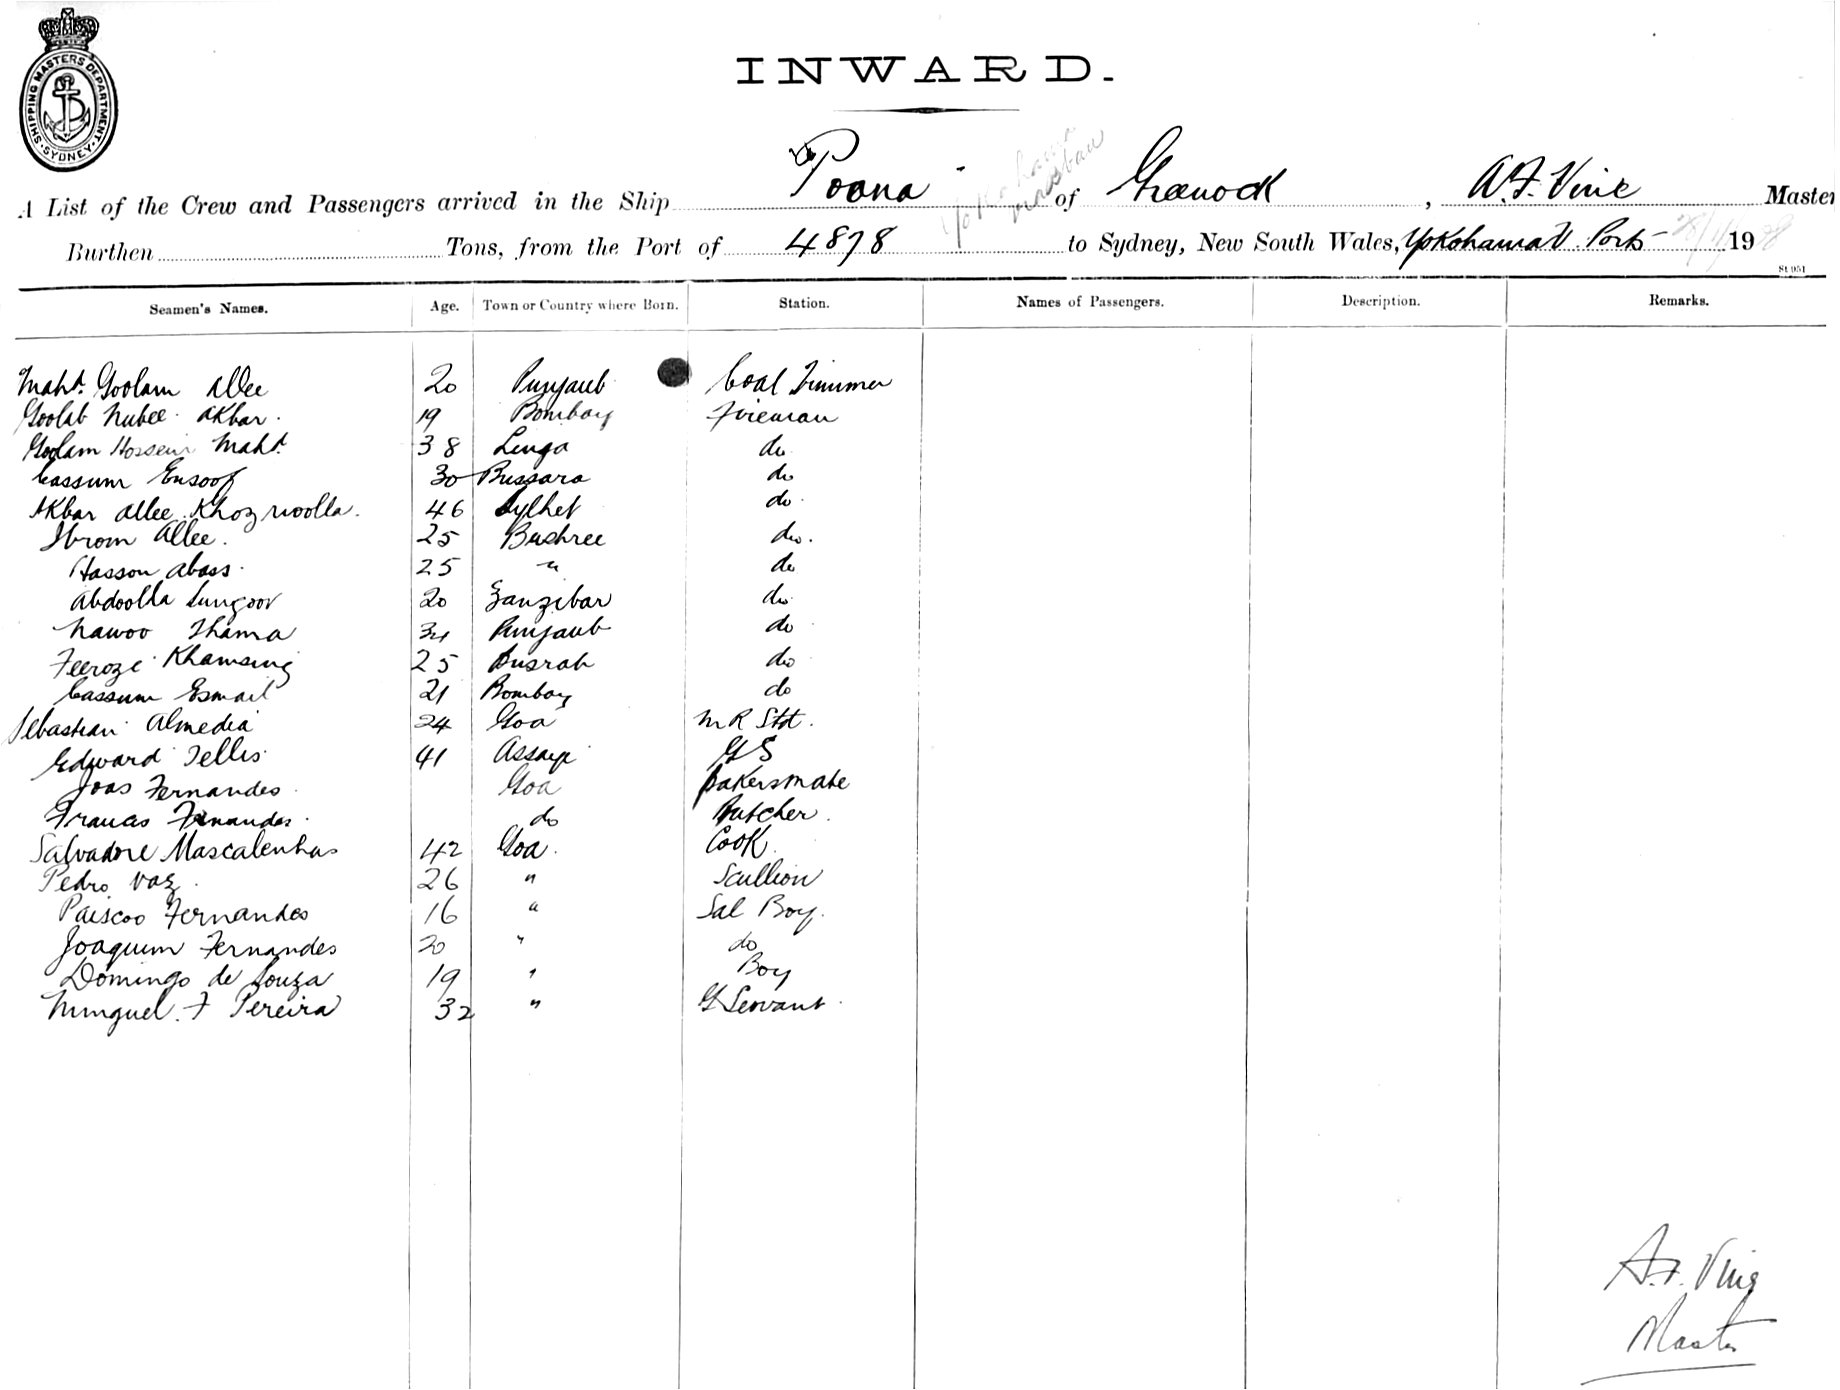 SHIPPING MASTERS DEPARTMENT. SYDNEY.
INWARD.
A List of the Crew and Passengers arrived in the Ship Poona of Greenock, A.F. Vine Master
Yokohama
Burthen Tons, from the Port of 4878 to Sydney, New South Wales, Yokohama V Ports 1908
St 951
Seamen's Names. Age. Town or Country where Born. Station. Names of Passengers. Description. Remarks.
Mahd. Goolam Allee 20 Punjaub Coal Trimmer
Goolab Nubee Akbar. 19 Bombay Fireman
Goolam Hossein Mahd. 38 Linga do
Cassum Eusoof 30 Bussara do
Akbar Allee Khoz 46 Sylhet do
Ibrom Allee. 25 Bushree do.
Hasson Abass. 25 " do
Abdoolla Sungoor 20 Zanzibar do
Nawoo Thama 34 Punjaub do
Feeroze Khamsing 25 Busrah do
Cassum Esmail 21 Bombay do
Sebastian Almedia 24 Goa M R Std.
Edward Tellis 41 G S
Joas Fernandes Goa Bakersmate
Francis Fernandes. do Butcher.
Salvadore Mascalenhas 42 Goa. Cook.
Pedro Vaz. 26 " Scullion
Paiscoo Fernandes 16 " Sal Boy.
Joaquim Fernandes 20 " do
Domingo de Souza 19 " Boy
Minguel. F Pereira 32 " G Servant.
A.F. Vine
Master